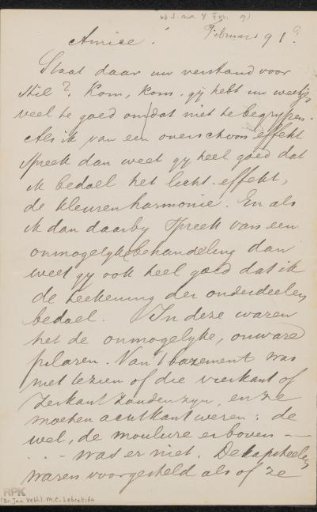 Februari 91.
Amice!
Staat daar uw verstand voor
stil? Kom, kom, gij hebt uw wereld
veel te goed om dat niet te begrijpen.
Als ik van een overschoon effekt
spreek dan weet gij heel goed dat
ik bedoel het licht-effekt,
de kleurenharmonie. En als
ik dan daarby spreek van een
onmogelyke behandeling dan
weet gy ook heel goed dat ik
de teekening der onderdeelen
bedoel. In deze waren
het de onmogelyke, onware
pilaren. Van 't bazement was
niet te zien of die vierkant of
zeskant zouden zyn, en ze
moeten achtkant weren; de
wel, de moulure erboven —
— was er niet. De kapiteelen
waren voorgesteld als of ze
RPK